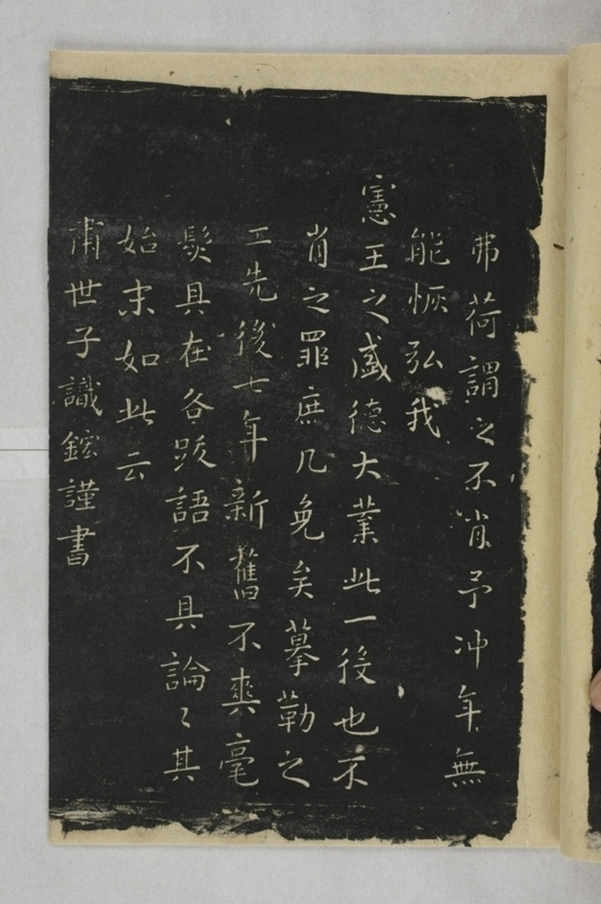 弗荷謂之不肖予冲年無
能恢弘我
憲王之盛德大業此一役也不
肖之罪庶几免矣摹勒之
工先後七年新舊不爽毫
髮具在各跋語不具論〻其
始末如此云
肅世子識鋐謹書